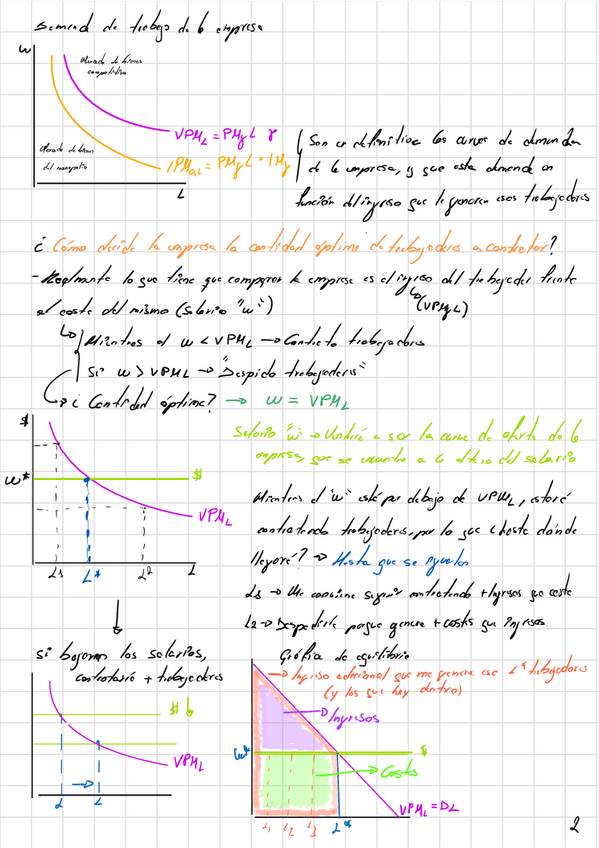 Demanda de trabajo de la empresa
w
Mercado de bienes
competitivo
VPML = PMgL · P
Mercado de bienes
del monopolio
IPMaL = PMgL · IMg
L
Son en definitiva las curvas de demanda
de la empresa, y que esta demanda en
función del ingreso que le generen esos trabajadores
¿Cómo decide la empresa la cantidad óptima de trabajadores a contratar?
- Realmente lo que tiene que comparar la empresa es el ingreso del trabajador frente
(VPMgL)
al coste del mismo (salario "w")
Mientras el w < VPML → Contrato trabajadores
Si w > VPML → "Despido trabajadores"
¿Cantidad óptima? → w = VPML
$
Salario "w" → Vendría a ser la curva de oferta de la
empresa, que se encuentra a la altura del salario
w*
$
VPML
L1 L* L2 L
Mientras el "w" esté por debajo de VPML, estaré
contratando trabajadores, por lo que ¿hasta dónde
llegaré? → Hasta que se igualen
L1 → Me conviene seguir contratando + Ingresos que coste
L2 → Despediría porque genera + costes que ingresos
Si bajaran los salarios,
contrataría + trabajadores
$
VPML
L L
Gráfica de equilibrio
→ Ingreso adicional que me genera ese L* trabajadores
(y los que hay dentro)
→ Ingresos
w*
$
→ Costes
VPML = DL
L1 L2 L3 L*
2